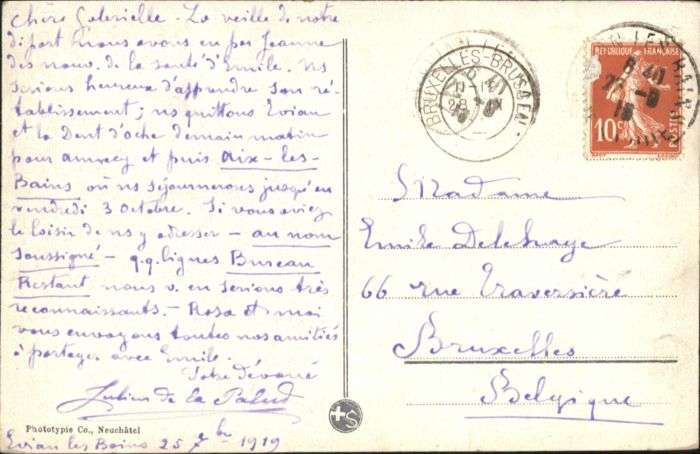 Chère Gabrielle - La veille de notre
départ nous avons eu par Jeanne
des nouv. de la santé d'Emile. Ns
serions heureux d'apprendre son ré-
tablissement; ns quittons Evian
et la Dent d'Oche demain matin
pour annecy et puis Aix-les-
Bains où ns séjournerons jusqu'au
vendredi 3 octobre. Si vous aviez
le loisir de ns y adresser - au nom
soussigné - q.q. lignes Bureau
Restant nous v. en serions très
reconnaissants. - Rosa et moi
vous envoyons toutes nos amitiés
à partager avec Emile.
Votre dévoué
de la Palud
Phototypie Co., Neuchâtel
Evian les Bains 25 7bre 1919
BRUXELLES-BRUSSEL
REPUBLIQUE FRANÇAISE
10c
POSTES
Madame
Emile Delehaye
66 rue Traversière
Bruxelles
Belgique